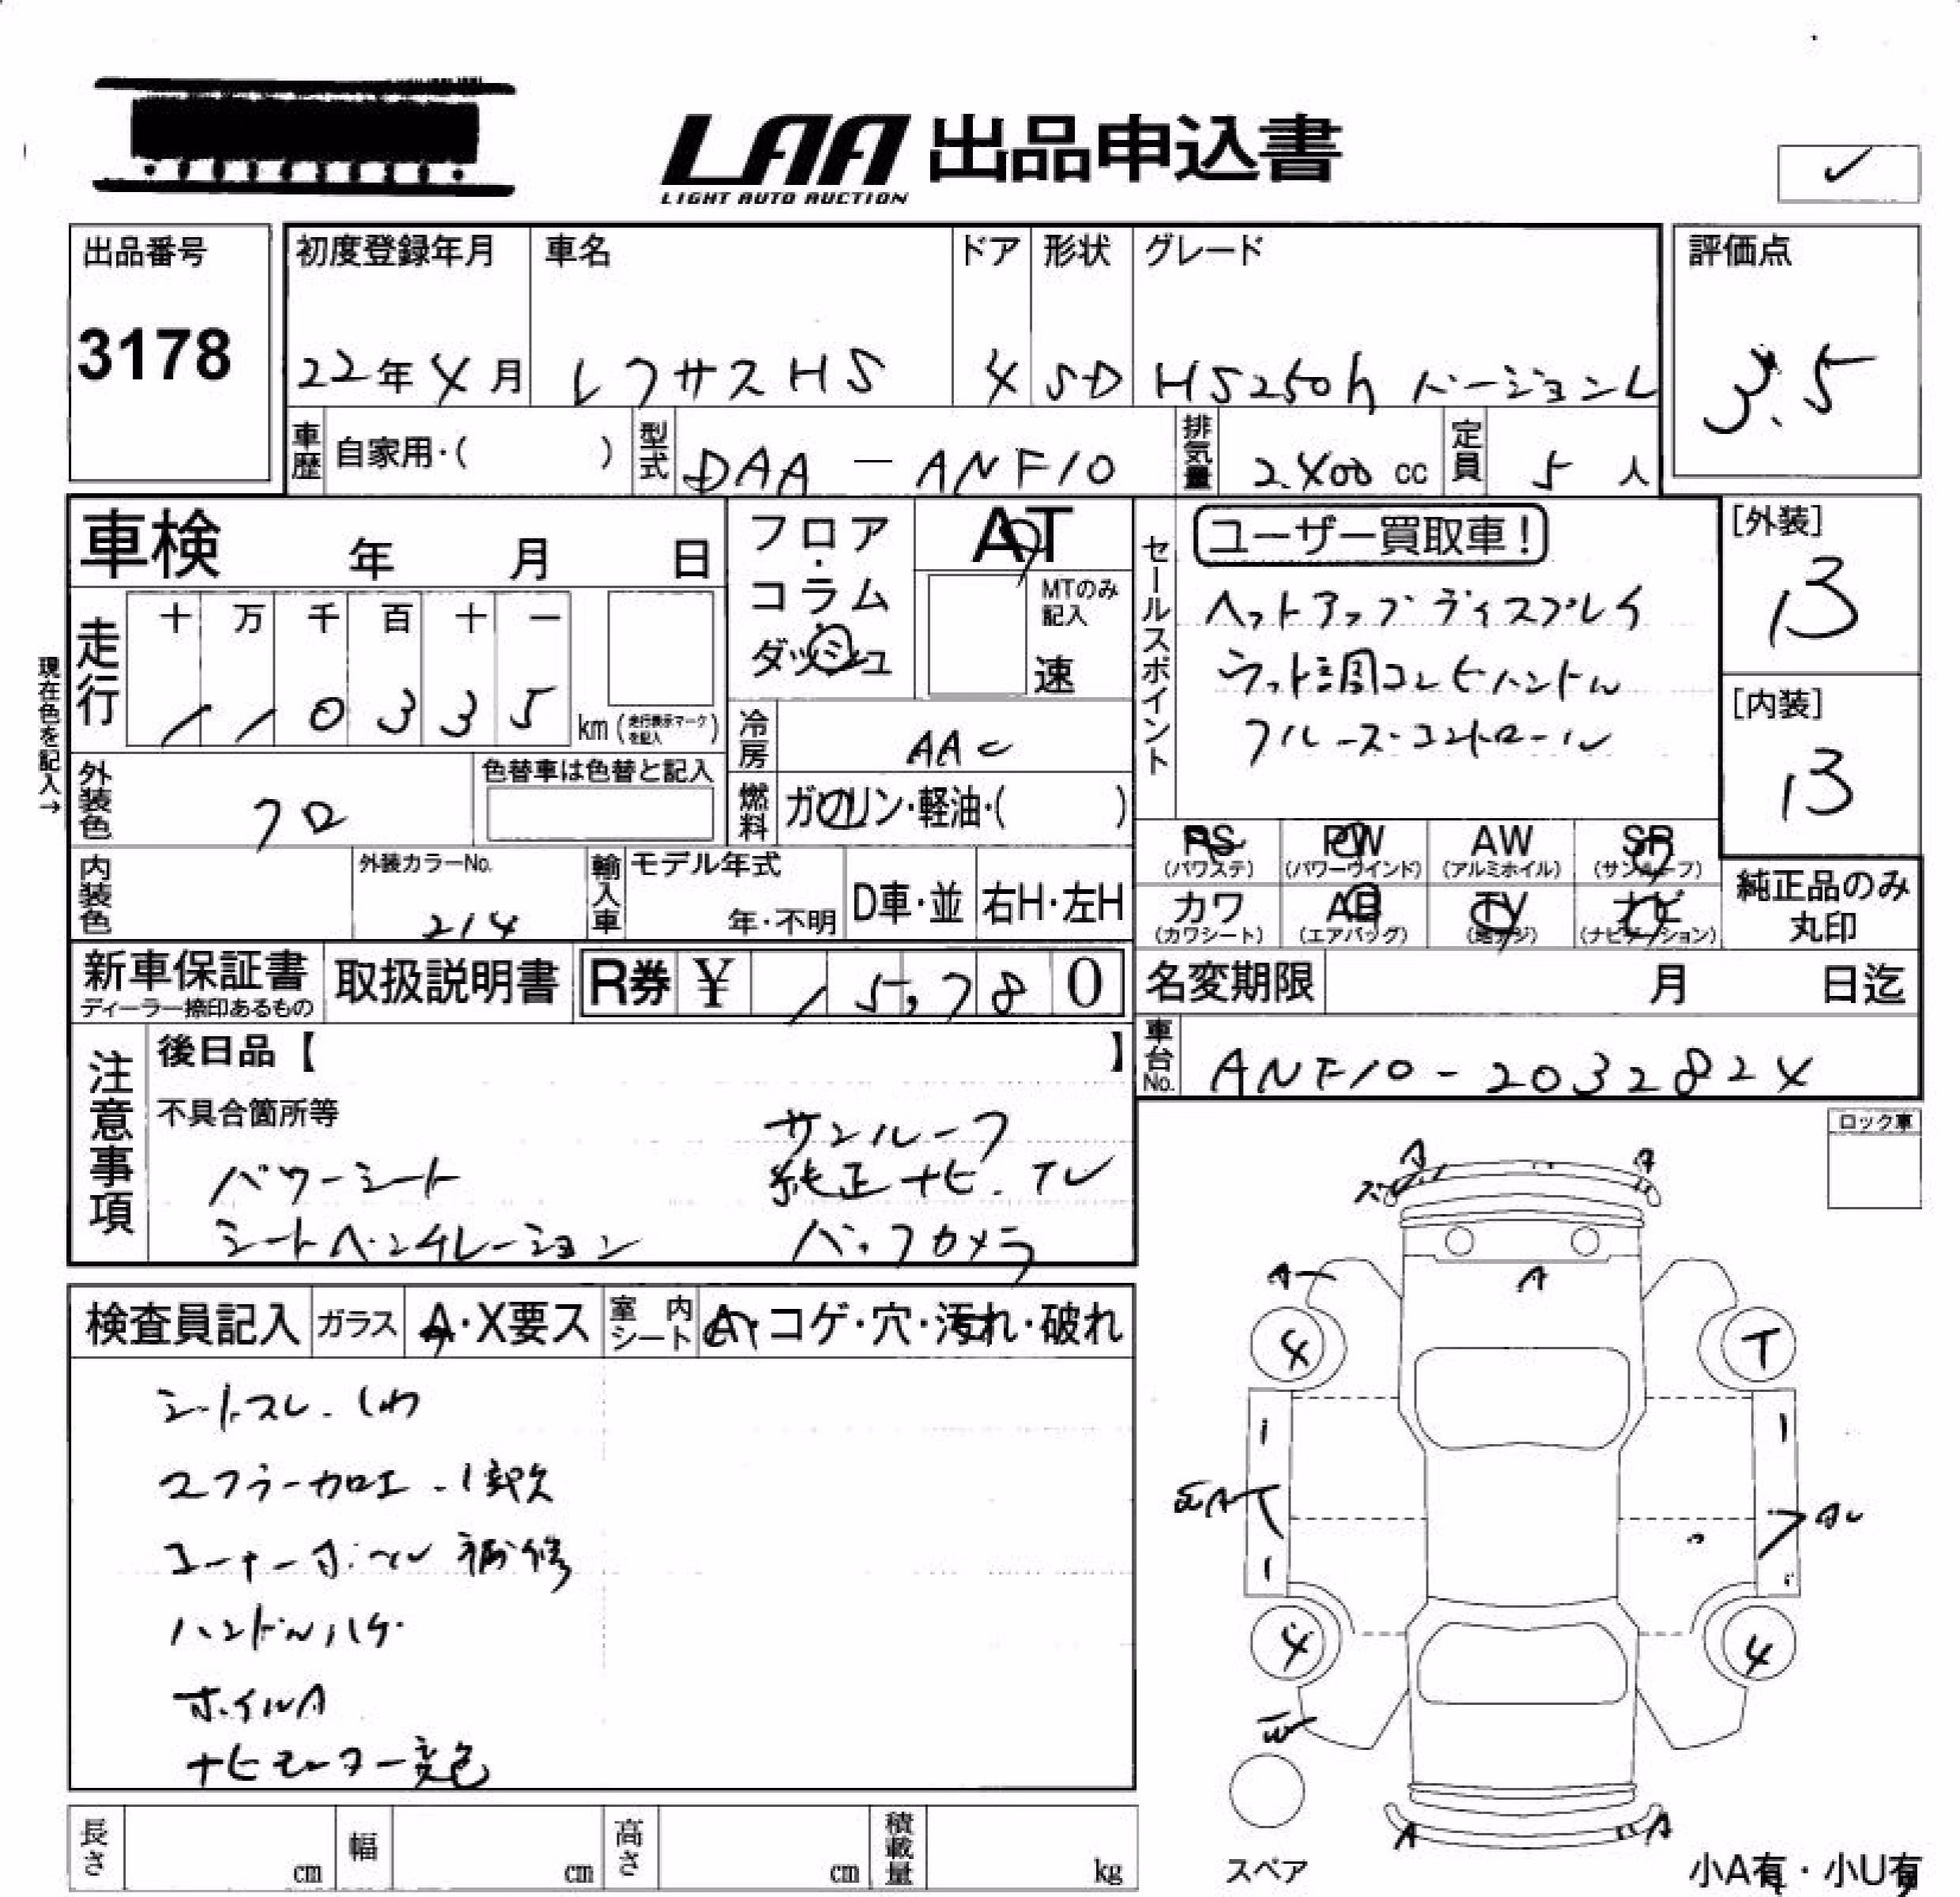 LAA 出品申込書
LIGHT AUTO AUCTION
✓
出品番号
3178
初度登録年月
22年4月
車名
レクサスHS
ドア
4
形状
SD
グレード
HS250h バージョンL
評価点
3.5
車歴 自家用・( )
型式 DAA-ANF10
排気量 2400 cc
定員 5 人
車検 年 月 日
フロア・コラム・ダッシュ
AT
MTのみ記入
速
セールスポイント
ユーザー買取車!
ヘットアップディスプレイ
ウット調コンビハンドル
クルーズ・コントロール
[外装]
13
[内装]
13
現在色を記入→
走行
十 万 千 百 十 一
1 1 0 3 3 5 km (走行表示マークを記入)
冷房 AAC
燃料 ガソリン・軽油・( )
外装色 クロ
色替車は色替と記入
内装色
外装カラーNo.
214
輸入車
モデル年式
年・不明
D車・並
右H・左H
PS (パワステ)
PW (パワーウインド)
AW (アルミホイル)
SR (サンルーフ)
カワ (カワシート)
AB (エアバッグ)
TV (地デジ)
ナビ (ナビゲーション)
純正品のみ丸印
新車保証書
ディーラー捺印あるもの
取扱説明書
R券 ¥ 15,780
名変期限 月 日迄
車台No. ANF10-2032824
注意事項
後日品【 】
不具合箇所等
サンルーフ
パワーシート 純正ナビ.TV
シートベンチレーション バックカメラ
ロック車
検査員記入
ガラス A・X要ス
室内シート A・コゲ・穴・汚れ・破れ
シートスレ.シワ
マフラー加工
コーナーポール 補修
ハンドルハゲ
ホイルA
ナビモニター変色
A
A
A
A
4
T
4
4
A
A
スペア
小A有・小U有
長さ cm
幅 cm
高さ cm
積載量 kg